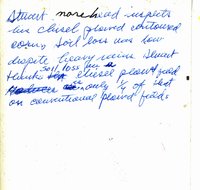 Stuart morehead inspects
his chisel plowed contoured
occurs. Soil loss was low
despite heavy rains. Stuart
thinks soil loss on a chisel plow field
is only 1/4 of that
on conventional plowed fields